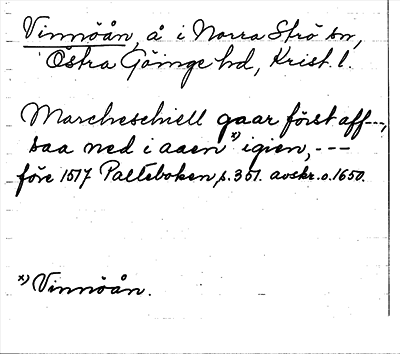 Vinnöån, å i Norra Strö sn,
Östra Göinge hd, Krist. l.
Marcheschiell gaar först aff---,
saa ned i aaen x) igien, ---
före 1517 Palteboken p. 351. avskr. o. 1650.
x) Vinnöån.